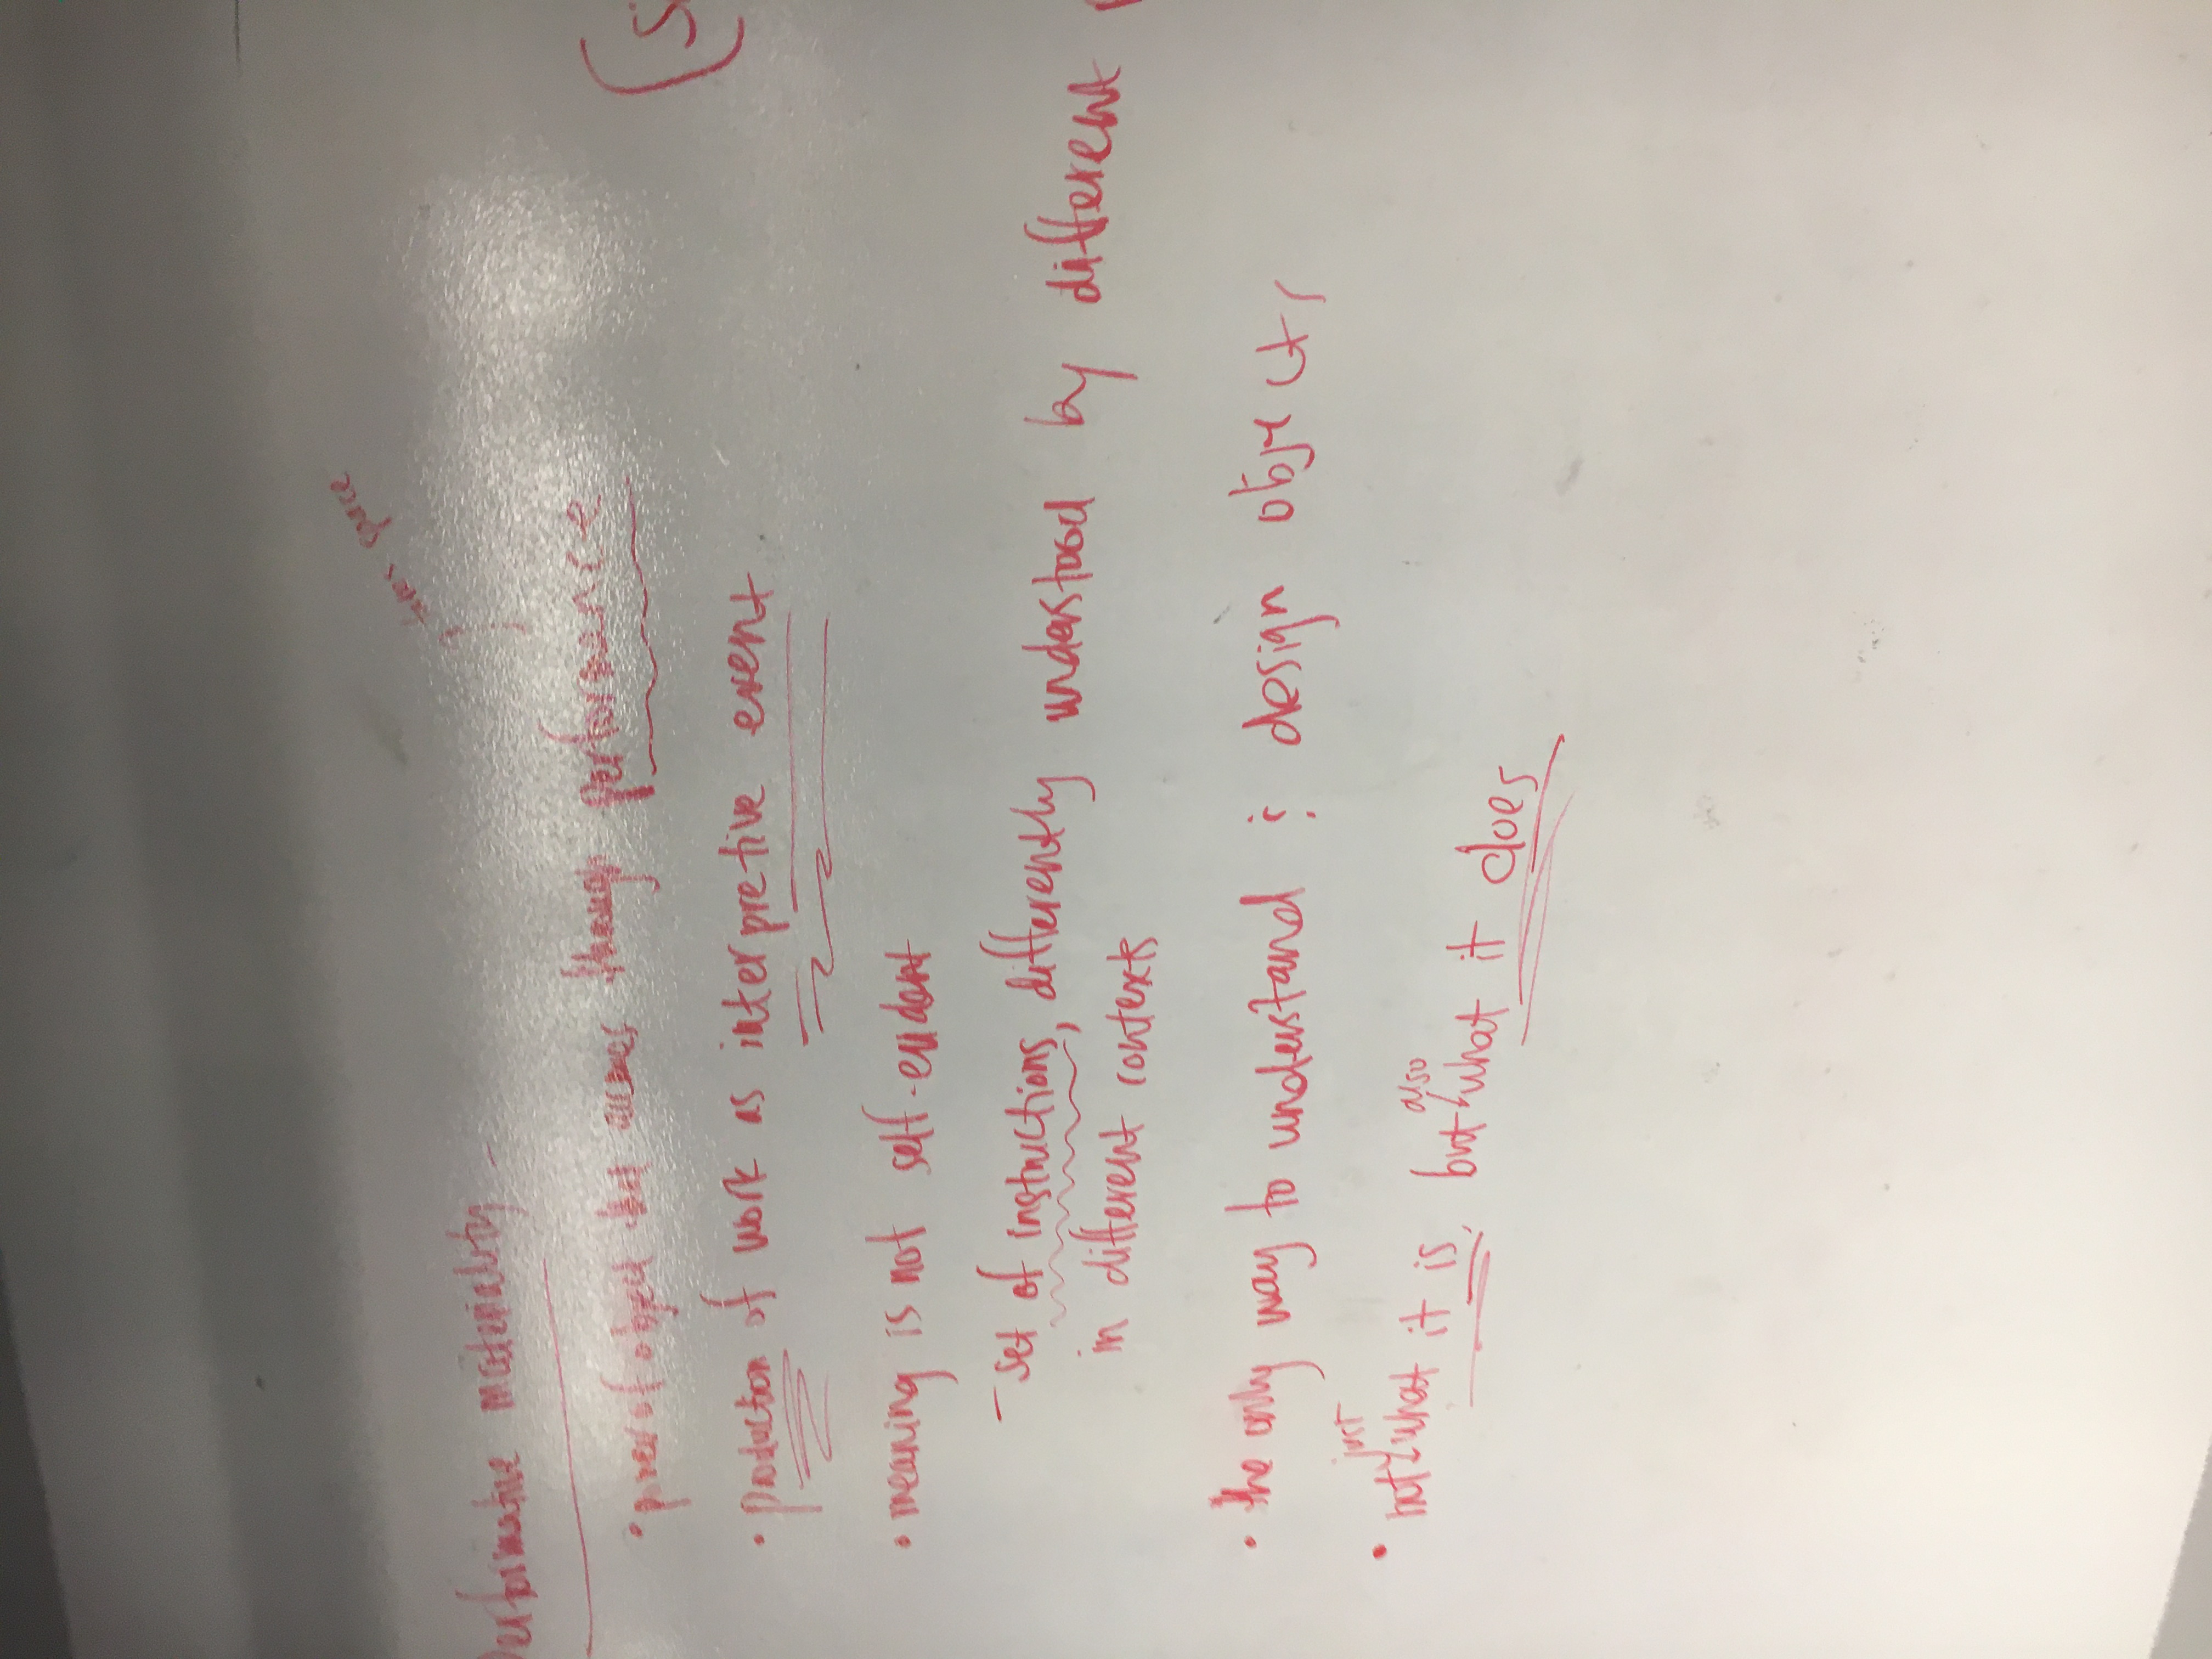 takes space
Performative materiality -
• power of object that accrues through performance
• production of work as interpretive event
• meaning is not self-evident
- set of instructions, differently understood by different
in different contexts
• the only way to understand & design objects
just
also
• not what it is, but what it does